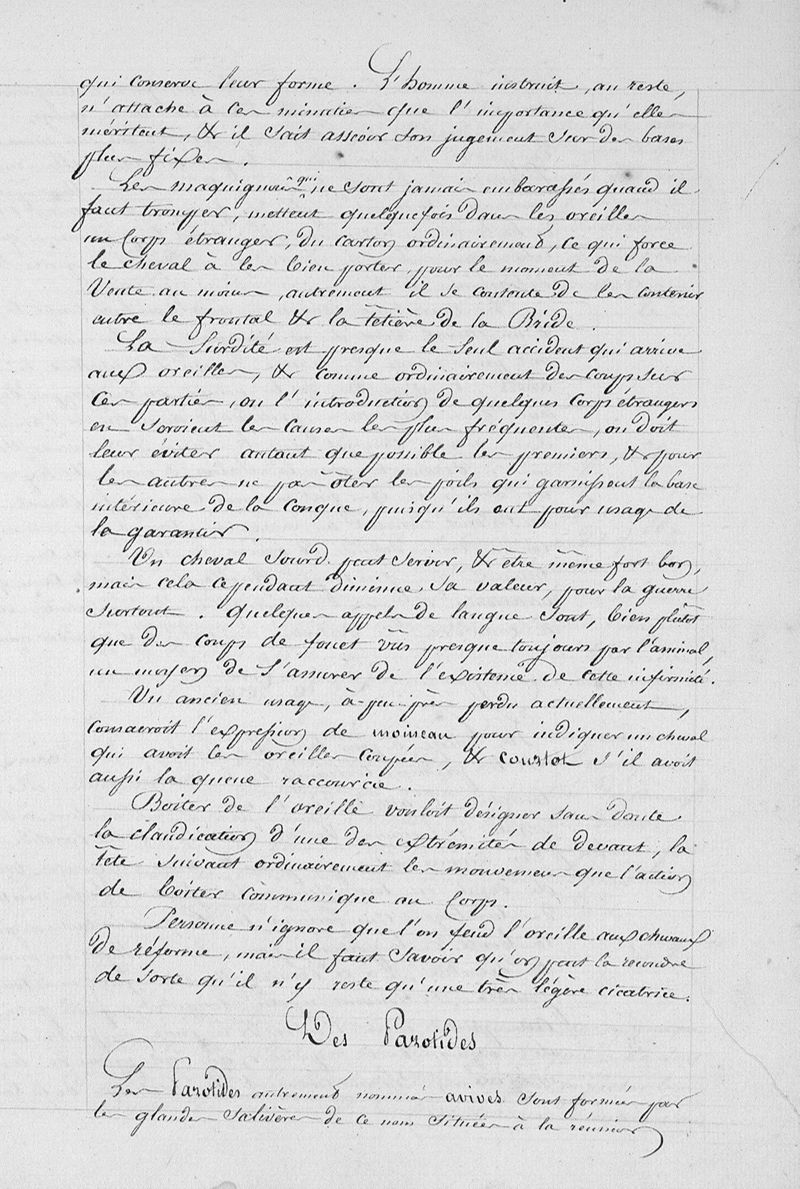 qui conserve leur forme. L'homme instruit, au reste,
n'attache à ces minuties que l'importance qu'elles
méritent, & il sait asseoir son jugement sur des bases
plus fixes.
Les maquignons qui ne sont jamais embarassés quand il
faut tromper, mettent quelquefois dans les oreilles
un corps étranger, du carton ordinairement, ce qui force
le cheval à les bien porter, pour le moment de la
Vente au moins, autrement il se contente de les contenir
entre le frontal & la têtière de la Bride.
La Surdité est presque le seul accident qui arrive
aux oreilles, & comme ordinairement des coups sur
ces parties, ou l'introduction de quelques corps étrangers
en seroient les causes les plus fréquentes, on doit
leur éviter autant que possible les premiers, & pour
les autres ne pas ôter les poils qui garnissent la base
intérieure de la conque, puisqu'ils ont pour usage de
la garantir.
Un cheval sourd peut servir, & être même fort bon,
mais cela cependant diminue sa valeur, pour la guerre
surtout. Quelques appels de langue sont, bien plutôt
que des coups de fouet vus presque toujours par l'animal,
un moyen de s'assurer de l'existence de cette infirmité.
Un ancien usage, à peu près perdu actuellement,
consacroit l'expression de moineau pour indiquer un cheval
qui avoit les oreilles coupées, & courtot s'il avoit
aussi la queue raccourcie.
Boiter de l'oreille vouloit désigner sans doute
la claudication d'une des extrémités de devant, la
tête suivant ordinairement les mouvemens que l'action
de boiter communique au corps.
Personne n'ignore que l'on fend l'oreille aux chevaux
de réforme, mais il faut savoir qu'on peut la recoudre
de sorte qu'il n'y reste qu'une très légère cicatrice.
Des Parotides
Les Parotides autrement nommées avives sont formées par
les glandes salivères de ce nom situées à la réunion